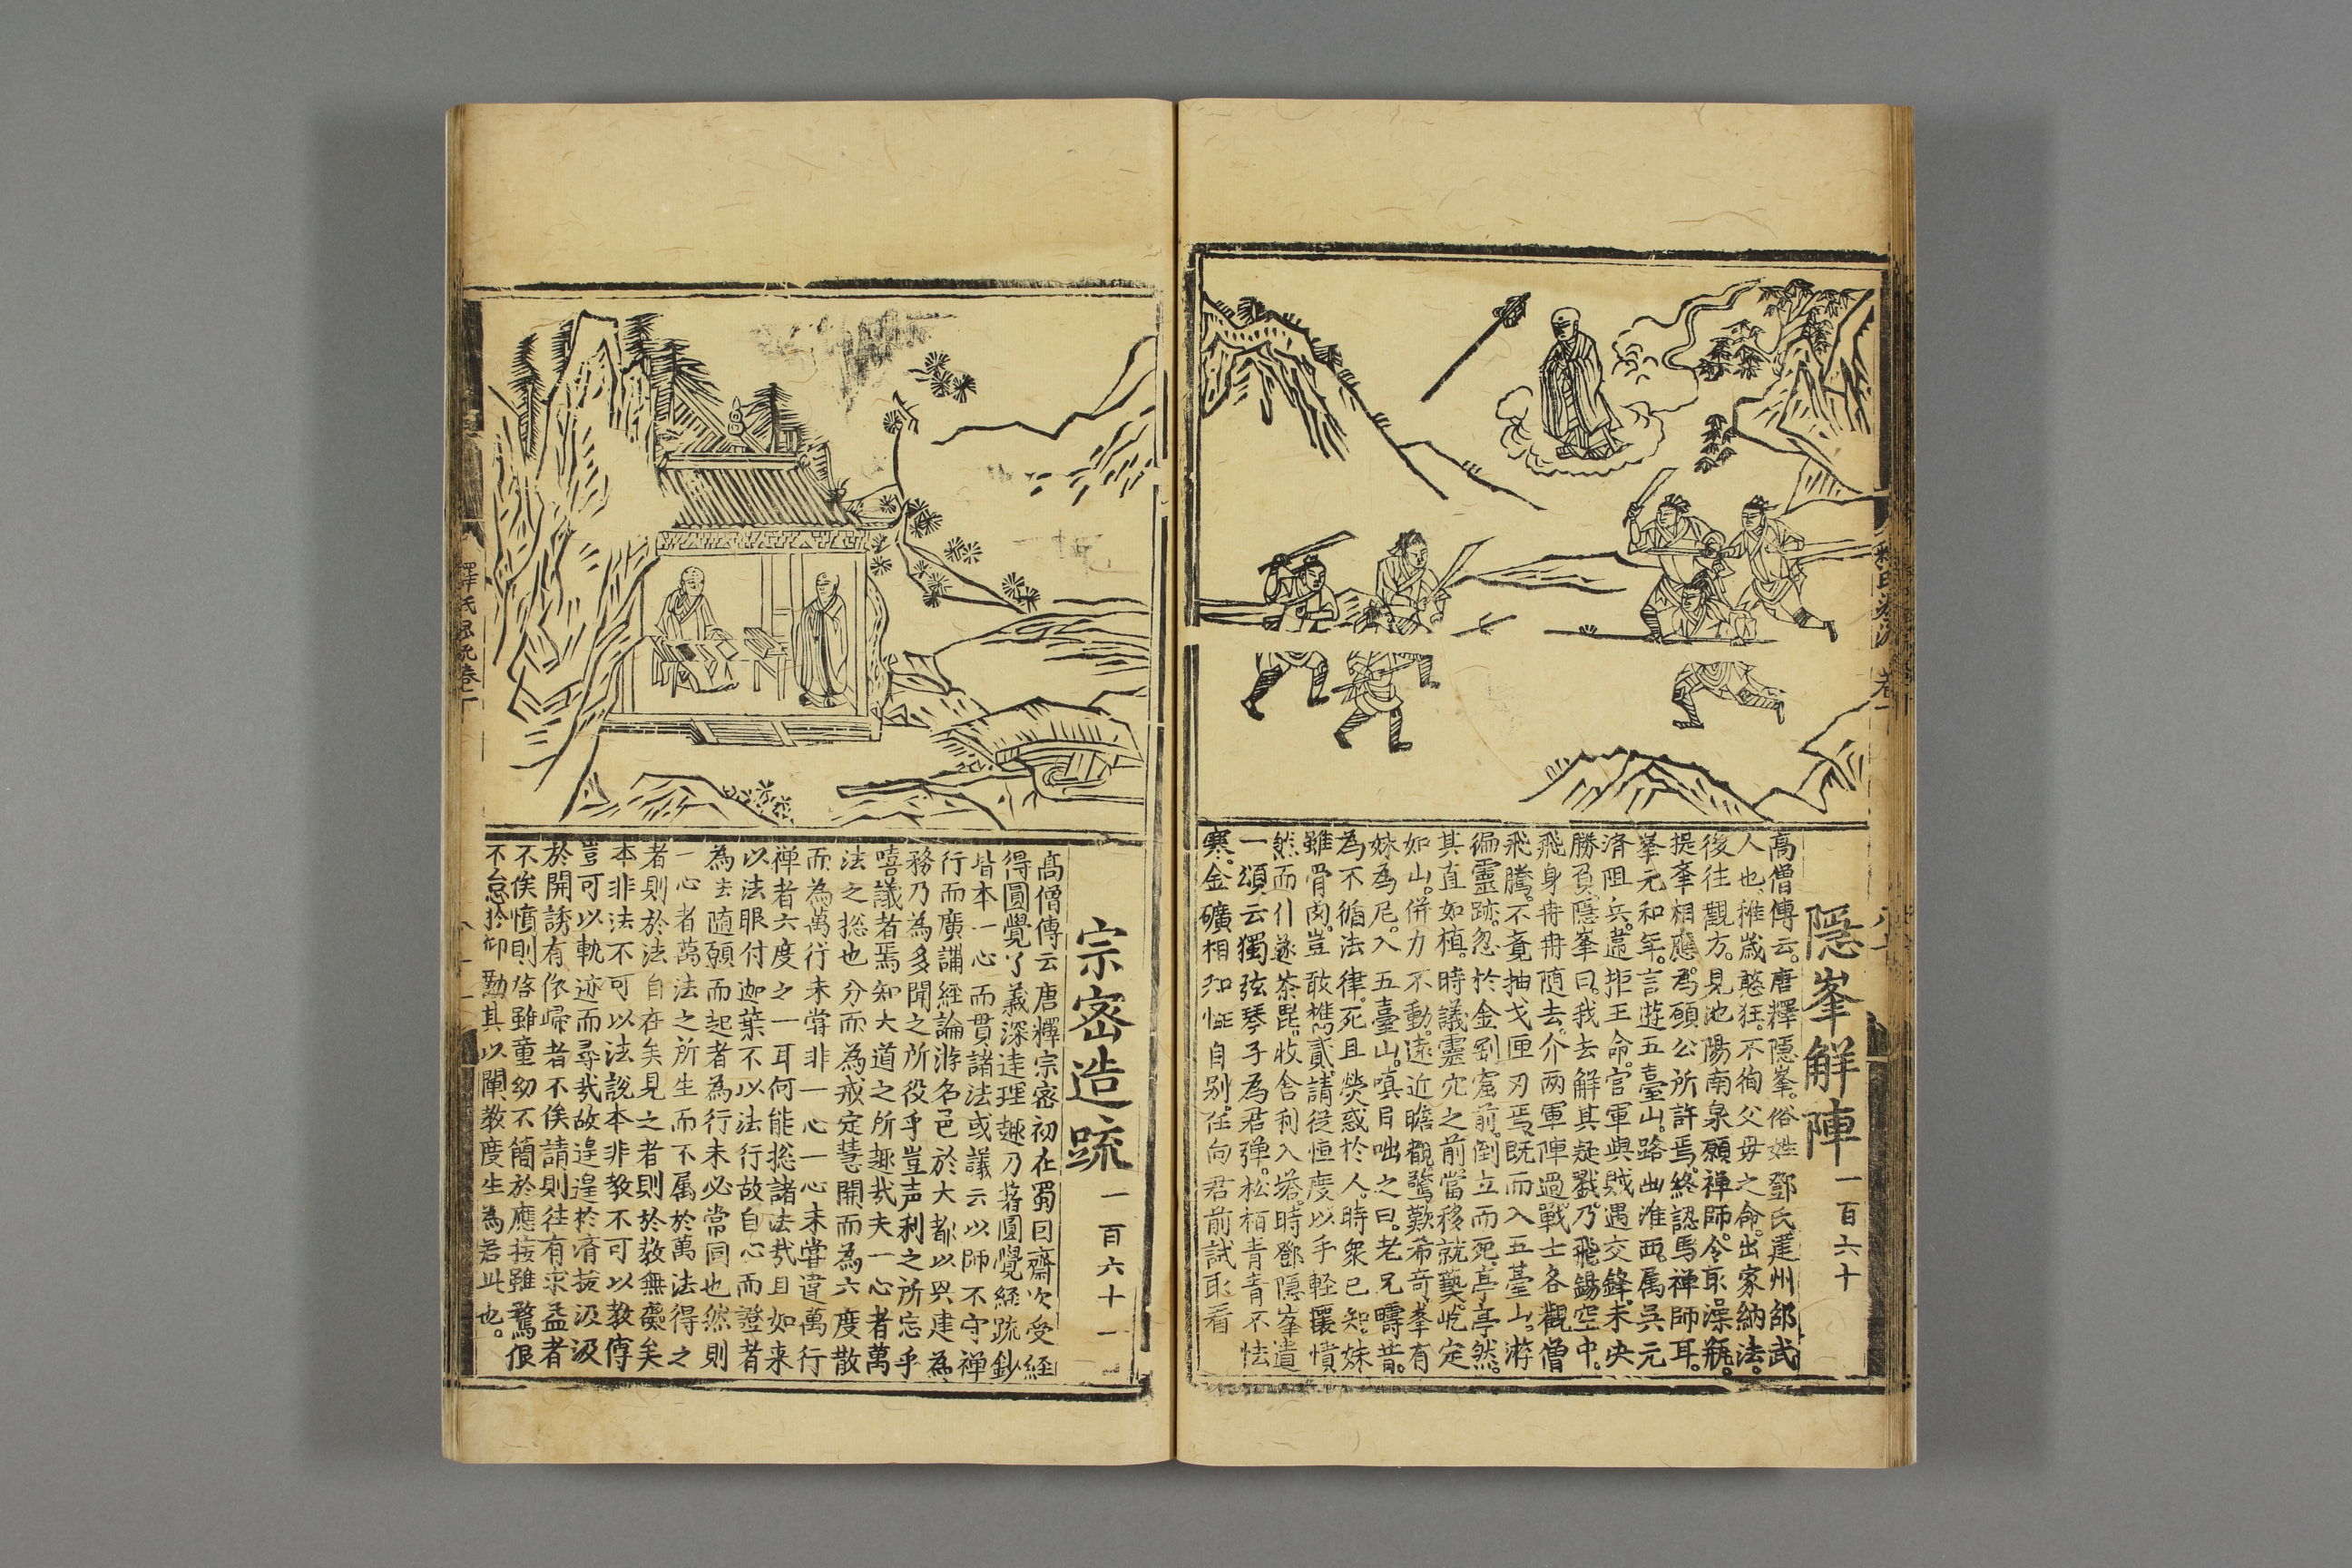 隱峯解陣 一百六十
高僧傳云。唐釋隱峯。俗姓鄧氏。建州邵武
人也。稚歲憨狂。不徇父毋之命。出家納法。
後往觀方。見池陽南泉願禪師。令取澡瓶。
提峯相應。為願公所許焉。終認馬禪師耳。
峯元和年。言遊五臺山。路出淮西。属吳元
濟阻兵。蓋拒王命。官軍與賊遇交鋒。未决
勝負。隱峯曰。我去解其疑戮。乃飛錫空中。
飛身冉冉随去。介两軍陣過。戰士各觀僧
飛騰。不竟抽戈匣刃焉。既而入五臺山。游
徧靈跡。忽於金剛窟前。倒立而死。亭亭然。
其直如植。時議靈穴之前。當移就爇。屹定
如山。併力不動。遠近瞻覩。驚歎希奇。峯有
妹為尼。入五臺山。嗔目咄之曰。老兄疇昔。
為不循法律。死且熒惑於人。時衆已知。妹
雖骨肉。豈敢携貳。請從恒度。以手軽攘。僨
然而仆。遂茶毘。收舍利入塔。時鄧隱峯遺
一頌云。獨弦琴子為君弹。松栢青青不怯
寒。金礦相和性自别。任向君前試取看
宗密造疏 一百六十一
高僧傳云唐釋宗密初在蜀因齋次受経
得圓覺了義深達理趣乃著圓覺経疏鈔
皆本一心而貫諸法或議云以師不守禪
行而廣講經論游名邑於大都以興建為
務乃為多聞之所役乎豈声利之所忘乎
嘻議者焉知大道之所趣㢤夫一心者萬
法之揔也分而為戒定慧開而為六度散
而為萬行未甞非一心一心未甞違萬行
禅者六度之一耳何能揔諸法㢤且如来
以法眼付迦葉不以法行故自心而證者
為法随願而起者為行未必常同也然則
一心者萬法之所生而不属於萬法得之
者則於法自在矣見之者則於教無礙矣
本非法不可以法說本非教不可以教傳
豈可以軌迹而尋㢤故遑遑於濟拔汲汲
於開誘有依歸者不俟請則往有求益者
不俟憤則啓雖童幼不簡於應接雖驁佷
不怠於叩勸其以闡教度生為若此也。
釋氏源流卷二